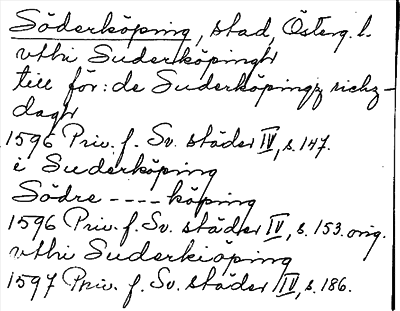 Söderköping, stad, Österg. l.
vthi Suderköpingh
till för: de Suderköpingz richz-
dagh
1596 Priv. f. Sv. städer IV, s. 147.
i Suderköping
Södre ---- köping
1596 Priv. f. Sv. städer IV, s. 153. orig.
vthi Suderkiöping
1597 Priv. f. Sv. städer IV, s. 186.